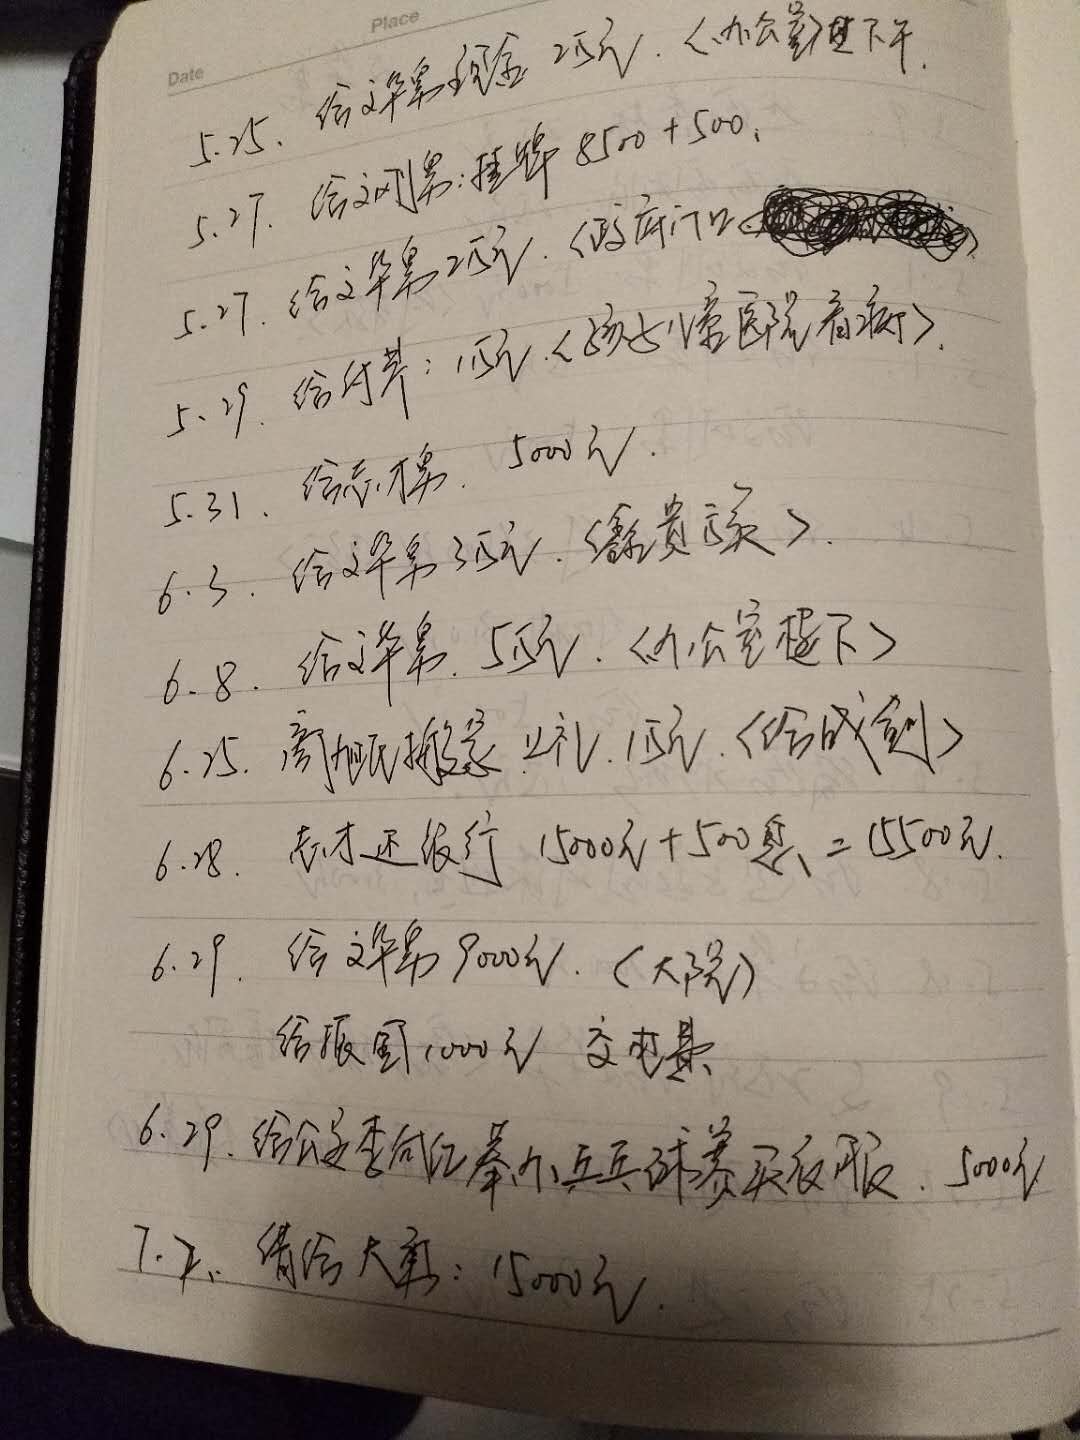 Place
Date
5.25. 给文华舅现金 2万元.〈办公室〉楼下午.
5.27. 给文刚舅:挂牌 8500+500.
5.27. 给文华舅2万元.〈政府门口
5.29. 给付芹:1万元.〈孩子儿童医院看病〉.
5.31. 给志才舅. 5000元.
6.3. 给文华舅3万元.
6.8. 给文华舅. 5万元.〈办公室楼下〉
6.25. 高旭民搬家上礼.1万元.〈给成刚〉
6.28. 志才还银行 15000元+500息=15500元.
6.29. 给文华舅9000元.(大院)
给振国1000元 交电费
6.29. 给公安李向红举办乒乓球赛买衣服. 5000元
7.2. 借给大勇:15000元.